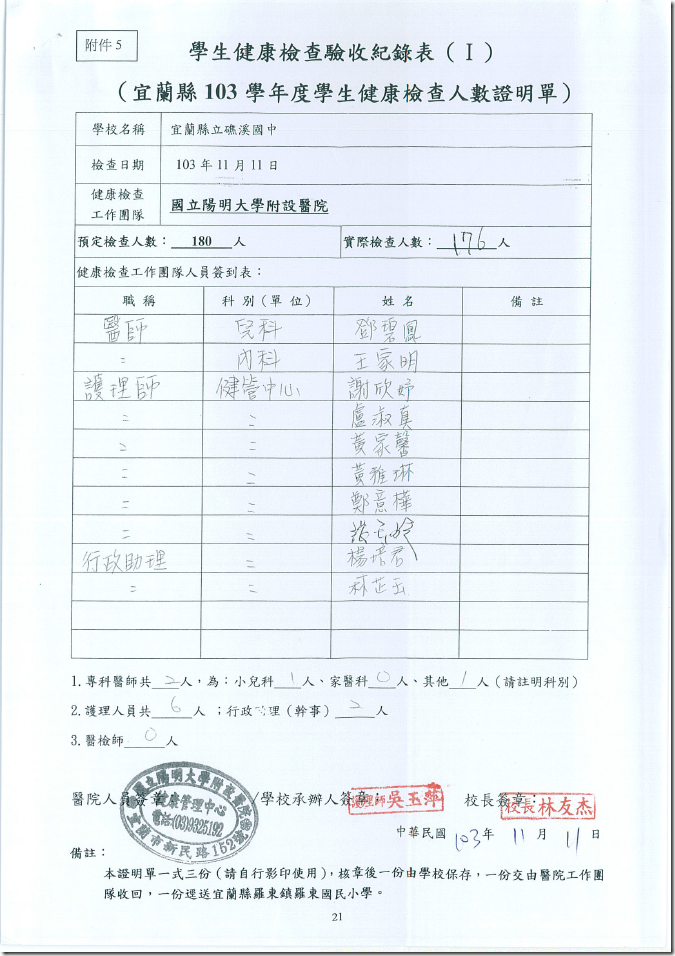 附件 5
學生健康檢查驗收紀錄表（Ⅰ）
（宜蘭縣 103 學年度學生健康檢查人數證明單）
學校名稱 宜蘭縣立礁溪國中
檢查日期 103 年 11 月 11 日
健康檢查
工作團隊 國立陽明大學附設醫院
預定檢查人數： 180 人 實際檢查人數： 176 人
健康檢查工作團隊人員簽到表：
職 稱 科 別（單 位） 姓 名 備 註
醫師 兒科 鄧碧鳳
〃 內科 王家明
護理師 健管中心 謝欣妤
〃 〃 盧淑真
〃 〃 黃家馨
〃 〃 黃雅琳
〃 〃 鄭意樺
〃 〃
行政助理 楊君
〃 〃 林芷玉
1.專科醫師共 2 人，為：小兒科 1 人、家醫科 0 人、其他 1 人（請註明科別）
2.護理人員共 6 人 ；行政助理（幹事） 2 人
3.醫檢師 0 人
國立陽明大學附設醫院
健康管理中心
電話:(03)9325192
宜蘭市新民路152號
醫院人員簽章 /學校承辦人簽章： 護理師 吳玉萍 校長簽章： 校長 林友杰
中華民國 103 年 11 月 11 日
備註：
本證明單一式三份（請自行影印使用），核章後一份由學校保存，一份交由醫院工作團
隊收回，一份逕送宜蘭縣羅東鎮羅東國民小學。
21